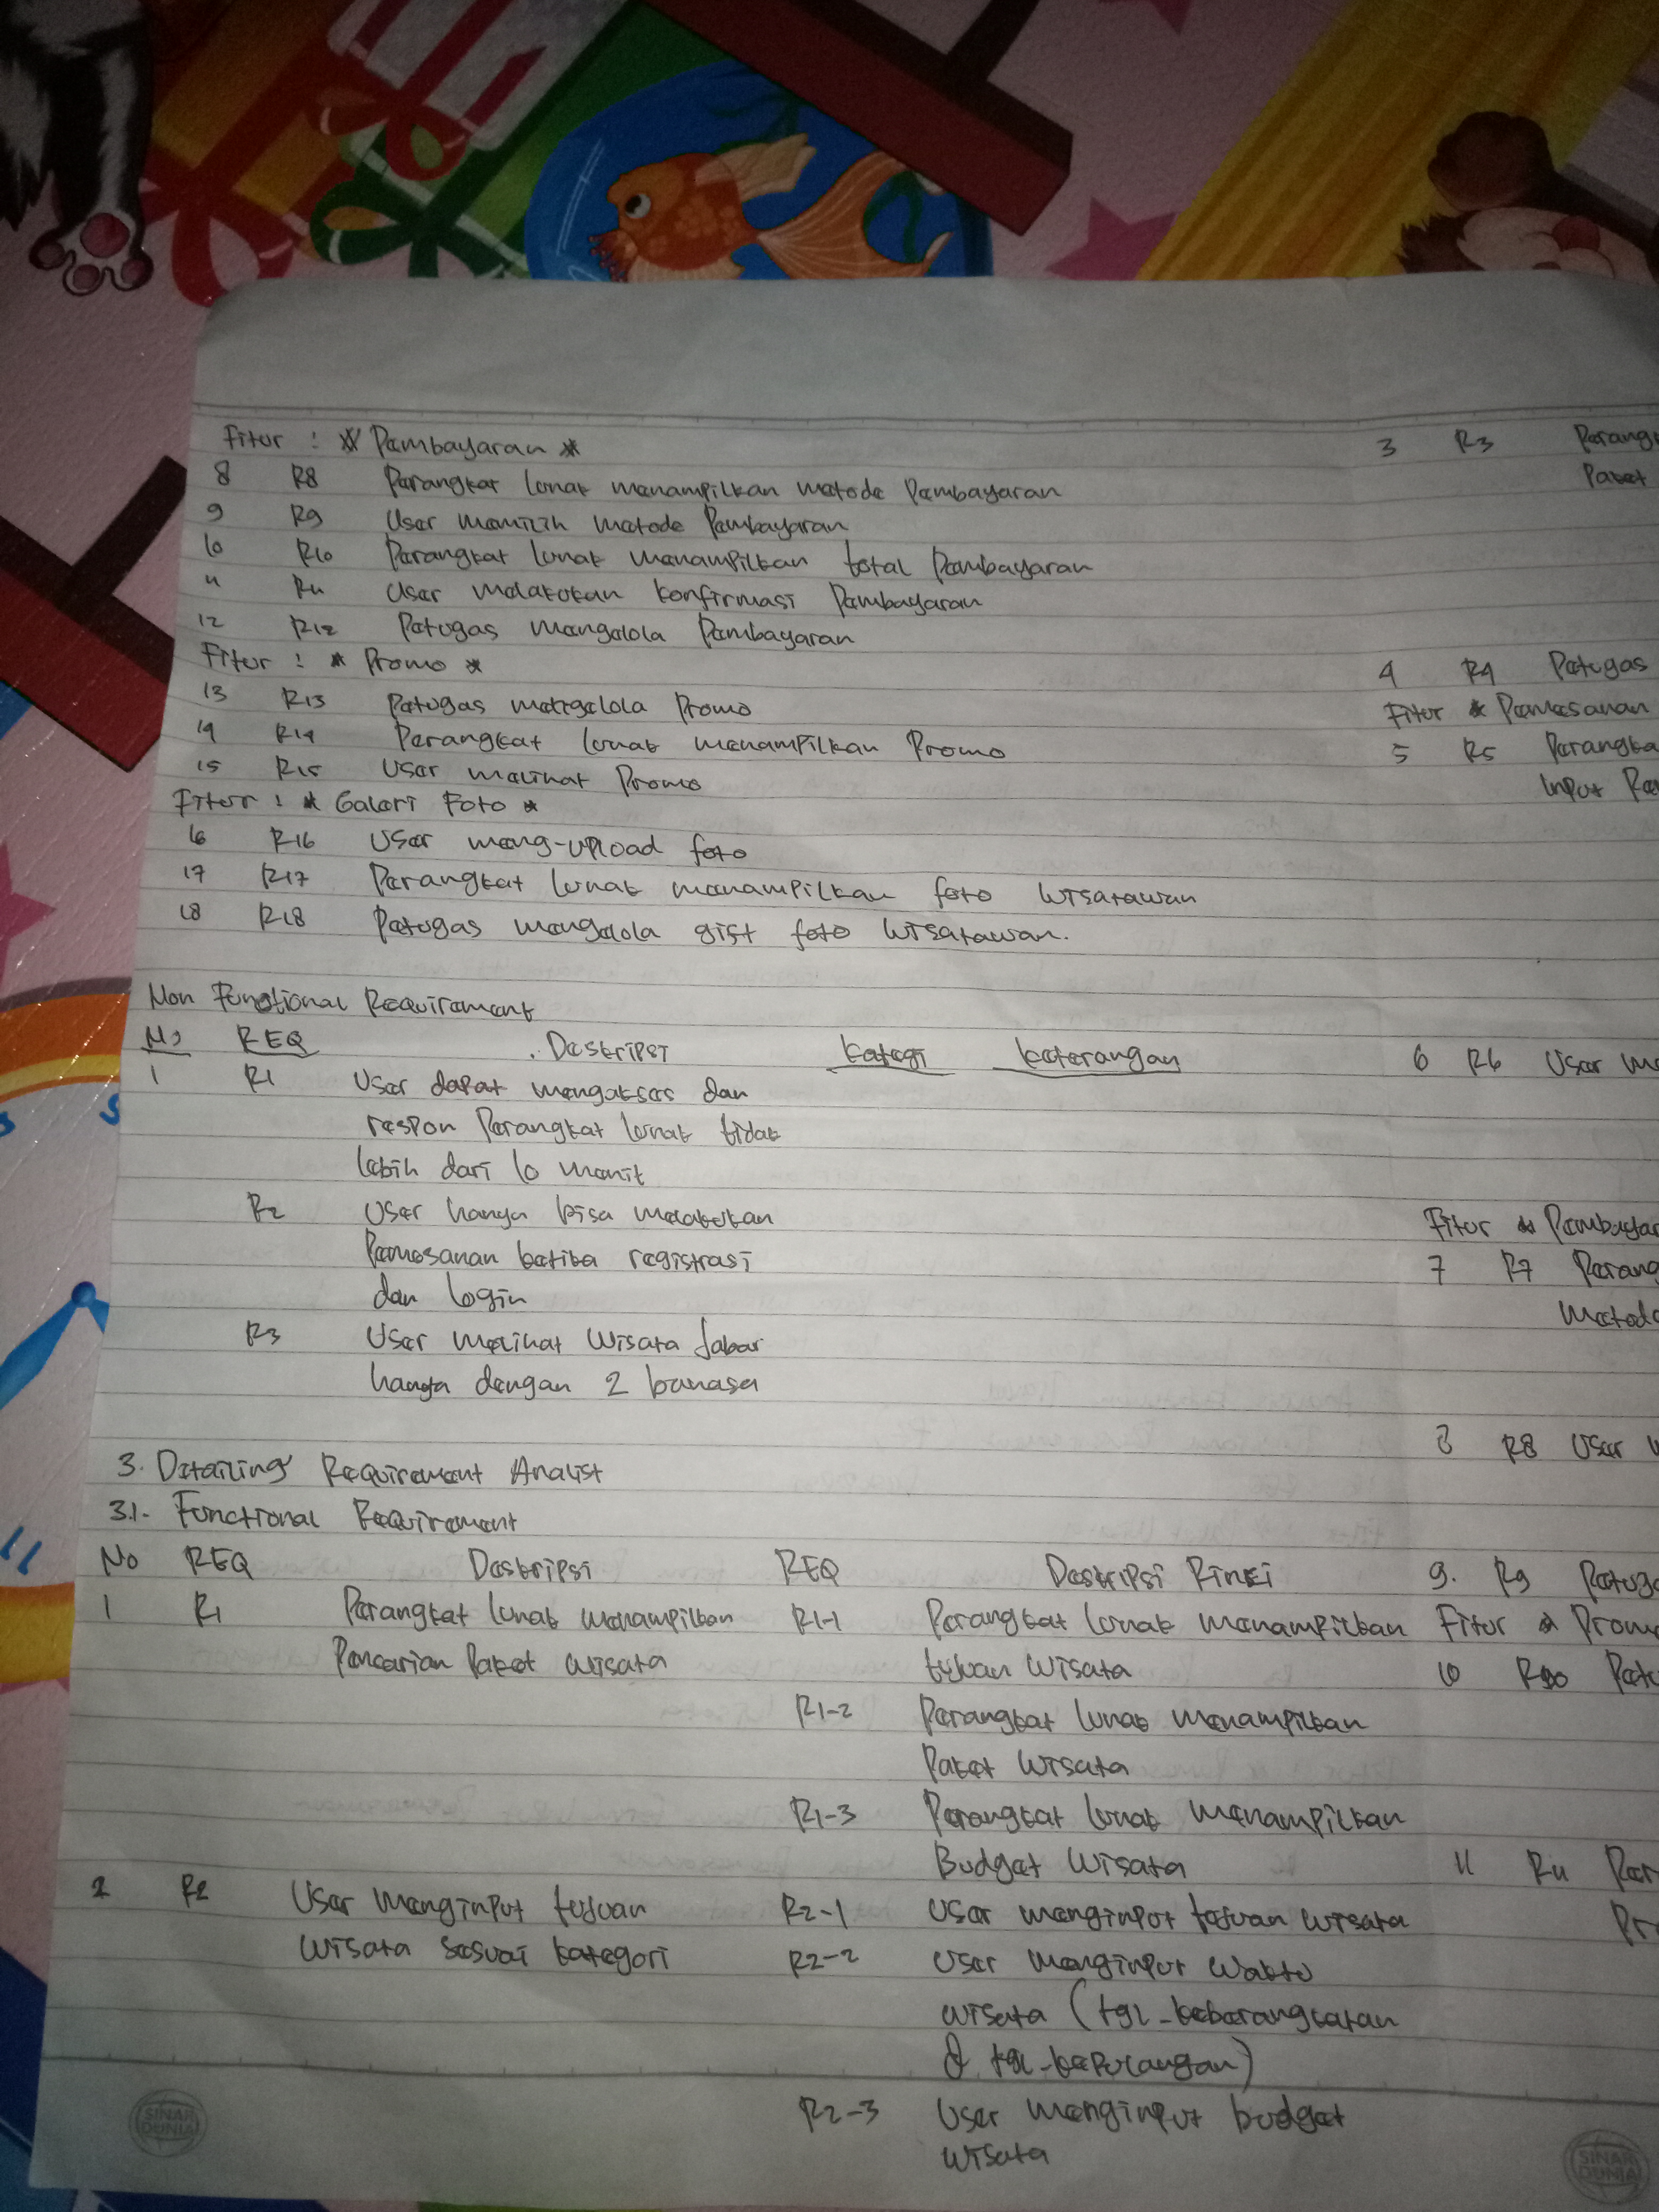 Fitur : * Pembayaran *
8 R8 Perangkat lunak menampilkan metode Pembayaran
9 R9 User memilih metode Pembayaran
10 R10 Perangkat lunak menampilkan total Pembayaran
11 R11 User melakukan konfirmasi Pembayaran
12 R12 Petugas mengelola Pembayaran
Fitur : * Promo *
13 R13 Petugas mengelola Promo
14 R14 Perangkat lunak menampilkan Promo
15 R15 User melihat Promo
Fitur : * Galeri Foto *
16 R16 User meng-upload foto
17 R17 Perangkat lunak menampilkan foto wisatawan
18 R18 Petugas mengelola gist foto wisatawan.
Non Functional Requirement
No REQ Deskripsi Kategi Keterangan
1 R1 User dapat mengakses dan
respon Perangkat lunak tidak
lebih dari 10 menit
R2 User hanya bisa melakukan
Pemesanan ketika registrasi
dan login
R3 User melihat wisata Jabar
hanya dengan 2 bahasa
3. Detailing Requirement Analist
3.1. Functional Requirement
No REQ Deskripsi REQ Deskripsi Rinci
1 R1 Perangkat lunak menampilkan R1-1 Perangkat lunak menampilkan
Pencarian Paket wisata tujuan wisata
R1-2 Perangkat lunak menampilkan
Paket wisata
R1-3 Perangkat lunak menampilkan
Budget wisata
2 R2 User menginput tujuan R2-1 User menginput tujuan wisata
wisata sesuai kategori R2-2 User menginput waktu
wisata (tgl_keberangkatan
& tgl_kepulangan)
R2-3 User menginput budget
wisata
3 R3 Perang
Paket
4 R4 Petugas
Fitur * Pemesanan
5 R5 Perangka
Input
6 R6 User me
Fitur * Pembayar
7 R7 Perang
Metod
8 R8 User
9. R9 Petug
Fitur * Prom
10 R10 Petu
11 R11 Per
Pr
SINAR DUNIA
SINAR DUNIA